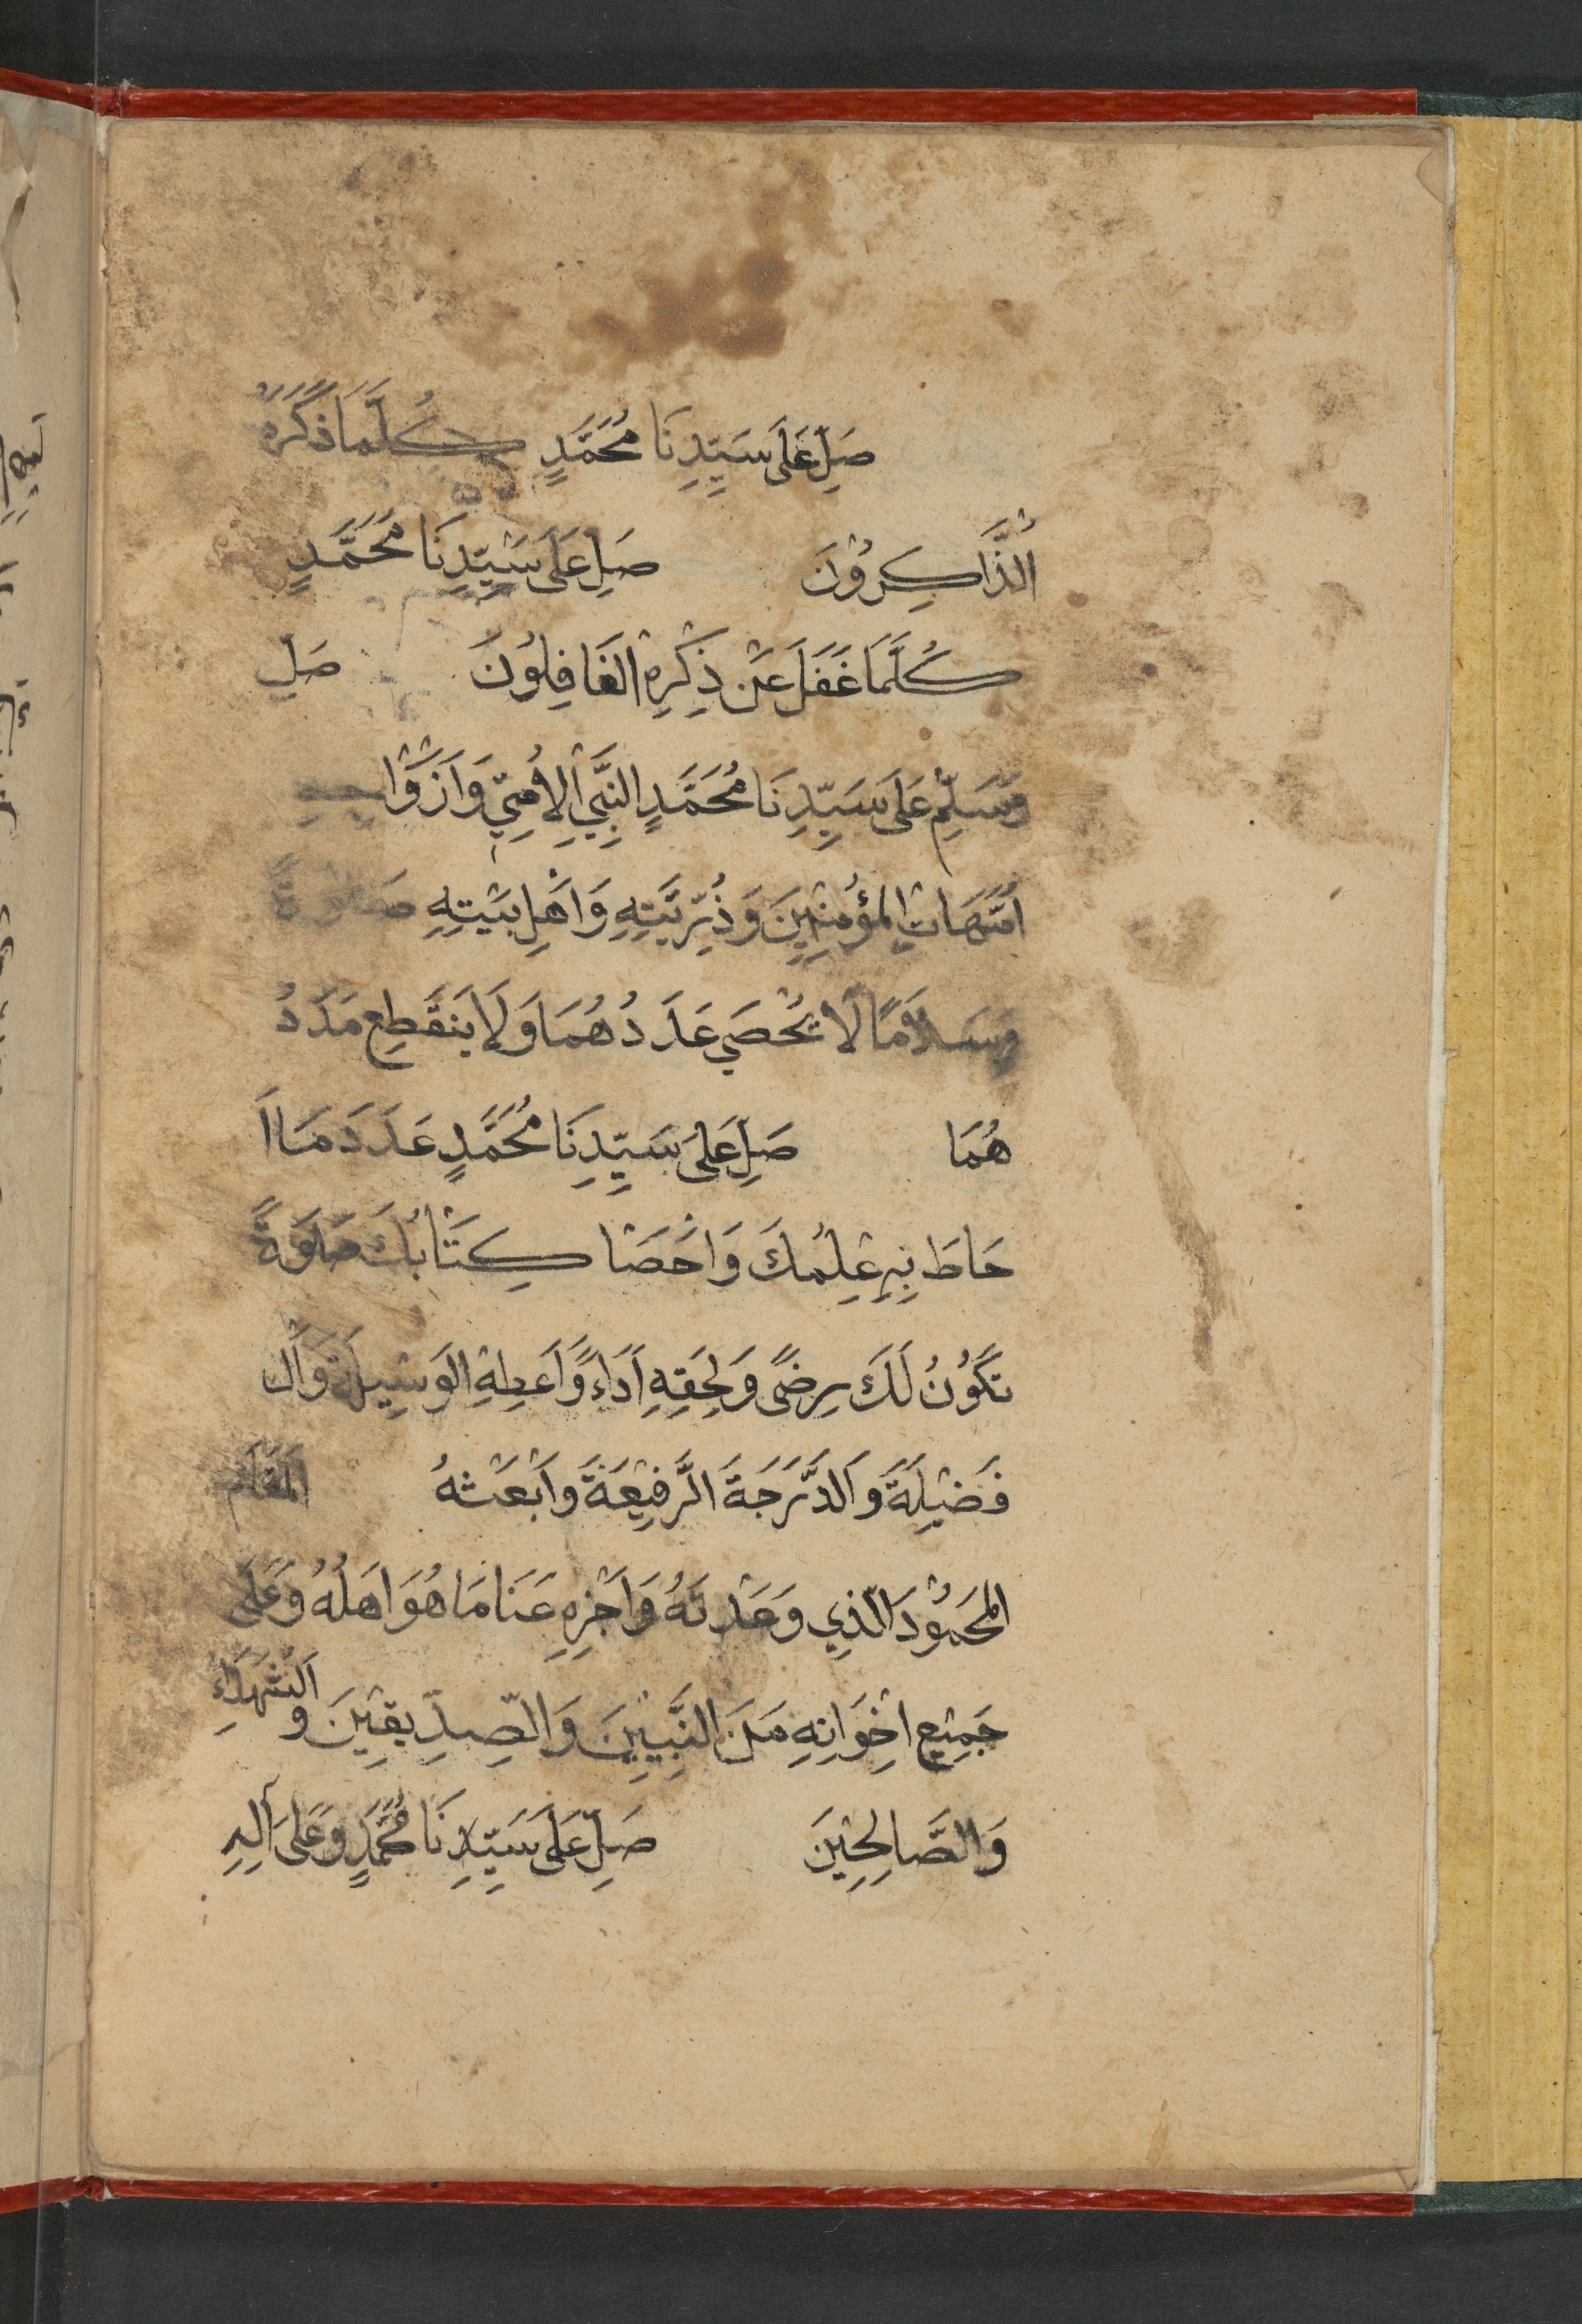 صَلِّ عَلَى سَيِّدِنَا مُحَمَّدٍ كُلَّمَا ذَكَرَهُ
الذَّاكِرُوْنَ صَلِّ عَلَى سَيِّدِنَا مُحَمَّدٍ
كُلَّمَا غَفَلَ عَنْ ذِكْرِهِ الْغَافِلُوْنَ صَلِّ
وَسَلِّمْ عَلَى سَيِّدِنَا مُحَمَّدٍ النَّبِيِّ الْاُمِّيِّ وَاَزْوَاجِهِ
اُمَّهَاتِ الْمُؤْمِنِيْنَ وَذُرِّيَّتِهِ وَاَهْلِ بَيْتِهِ صَلٰوةً
وَسَلَامًا لَا يُحْصَي عَدَدُهُمَا وَلَا يَنْقَطِعُ مَدَدُ
هُمَا صَلِّ عَلَى سَيِّدِنَا مُحَمَّدٍ عَدَدَ مَا اَ
حَاطَ بِهِ عِلْمُكَ وَاَحْصَا كِتَابُكَ صَلَوةً
تَكُوْنُ لَكَ رِضًى وَلِحَقِّهِ اَدَاءً وَاَعْطِهِ الْوَسِيْلَةَ وَال
فَضِيْلَةَ وَالدَّرَجَةَ الرَّفِيْعَةَ وَابْعَثْهُ الْمَقَامَ
الْمَحْمُوْدَ الَّذِي وَعَدْتَهُ وَاَجْزِهِ عَنَّا مَا هُوَ اَهْلُهُ وَعَلَى
جَمِيْعِ اِخْوَانِهِ مِنَ النَّبِيِّيْنَ وَالصِّدِّيْقِيْنَ وَالشُّهَدَاءِ
وَالصَّالِحِيْنَ صَلِّ عَلَى سَيِّدِنَا مُحَمَّدٍ وَعَلَى آلِهِ